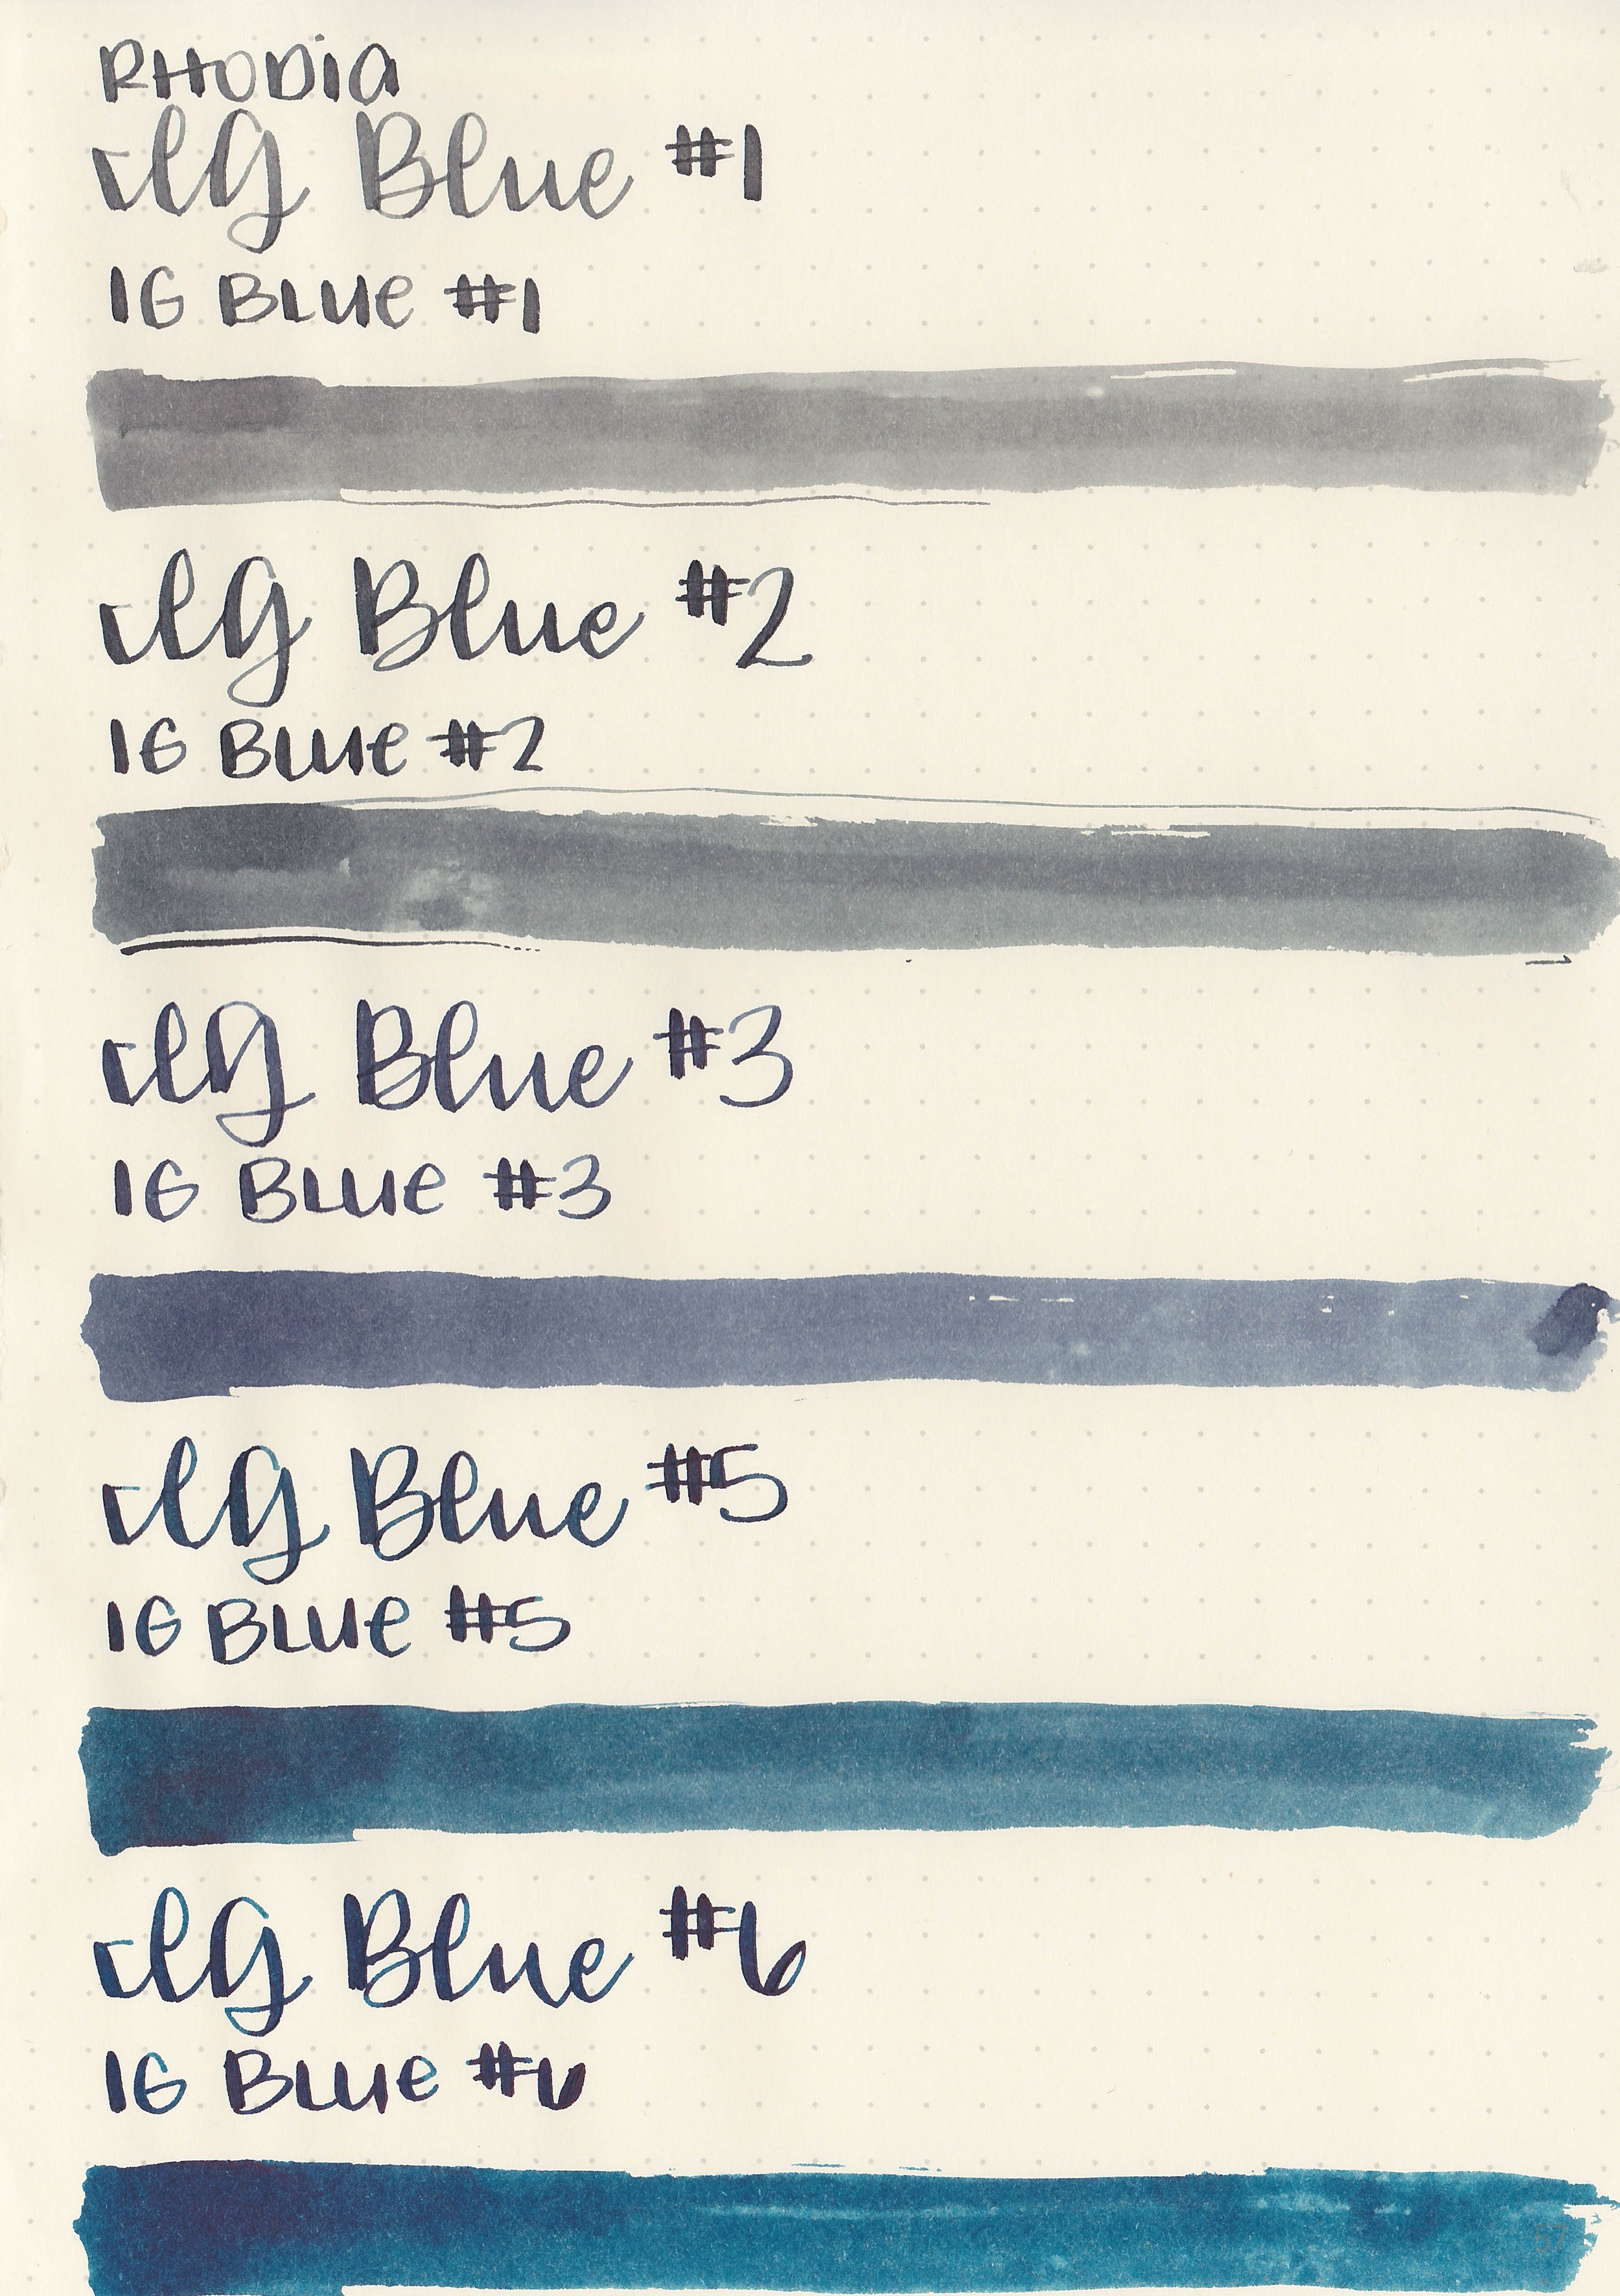 RHODIA
IG Blue #1
IG BLUE #1
IG Blue #2
IG BLUE #2
IG Blue #3
IG BLUE #3
IG Blue #5
IG BLUE #5
IG Blue #6
IG BLUE #6
57